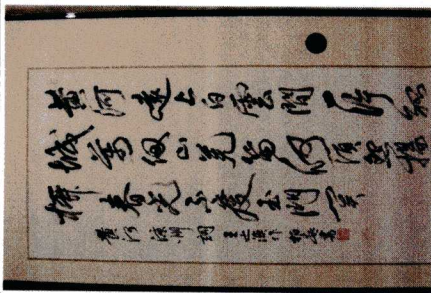 黄河遠上白雲間一片孤
城萬仞山羌笛何須怨楊
柳春光不度玉門關
黄河 涼州詞 王之渙作 書